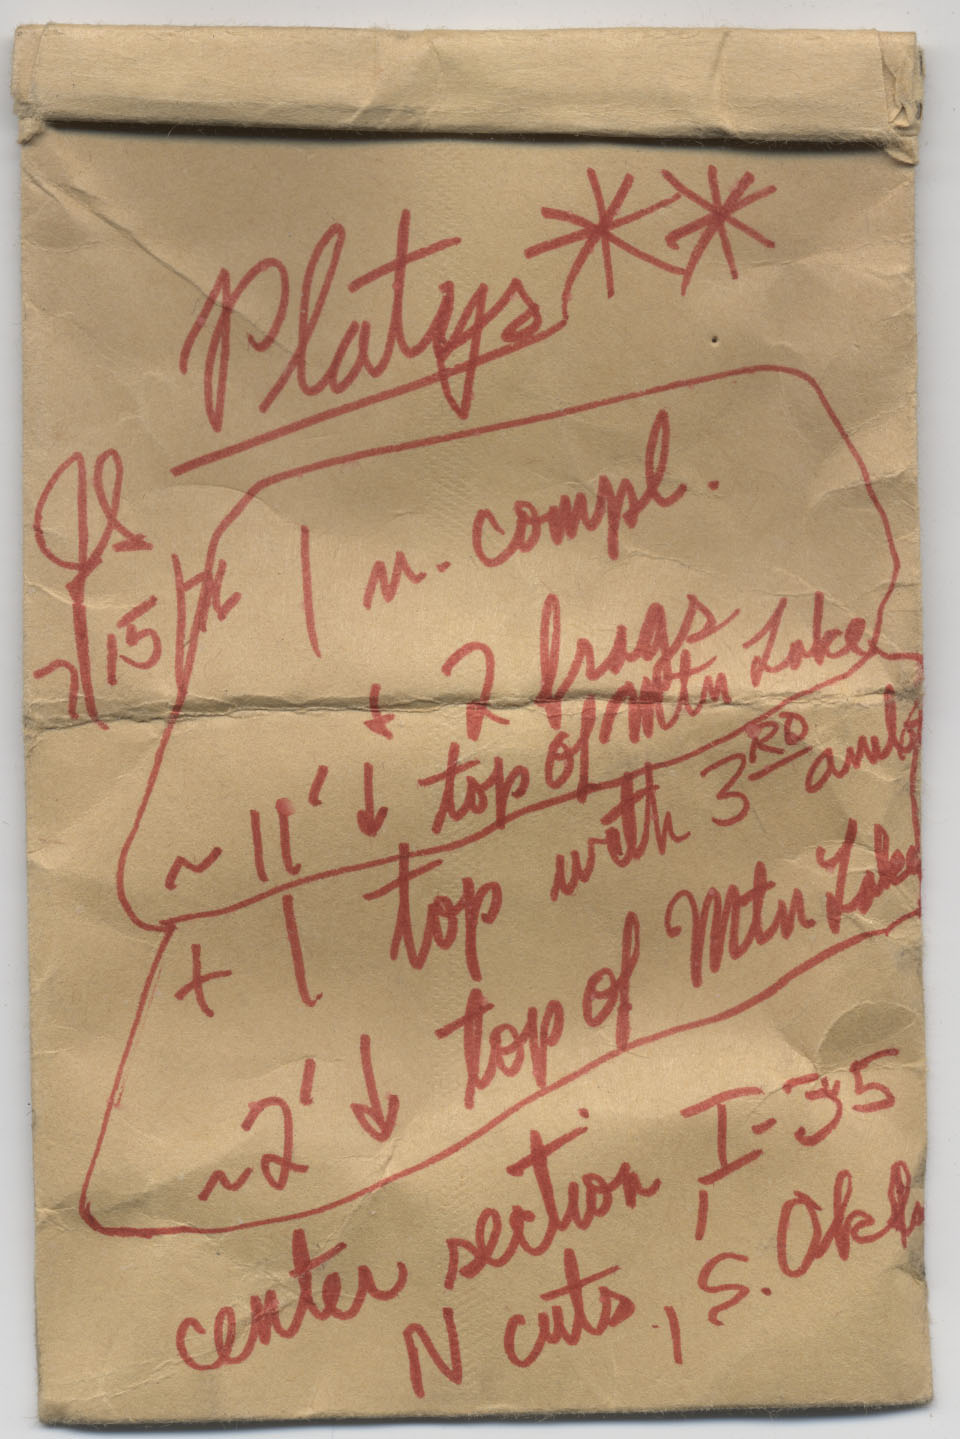 Platys **
JS
7/15/78
1 n. compl.
+ 2 frags
~ 11' ↓ top of Mtn Lake
+ 1 top with 3RD amb
~2' ↓ top of Mtn Lake
center section I-35
N cuts, S. Okla